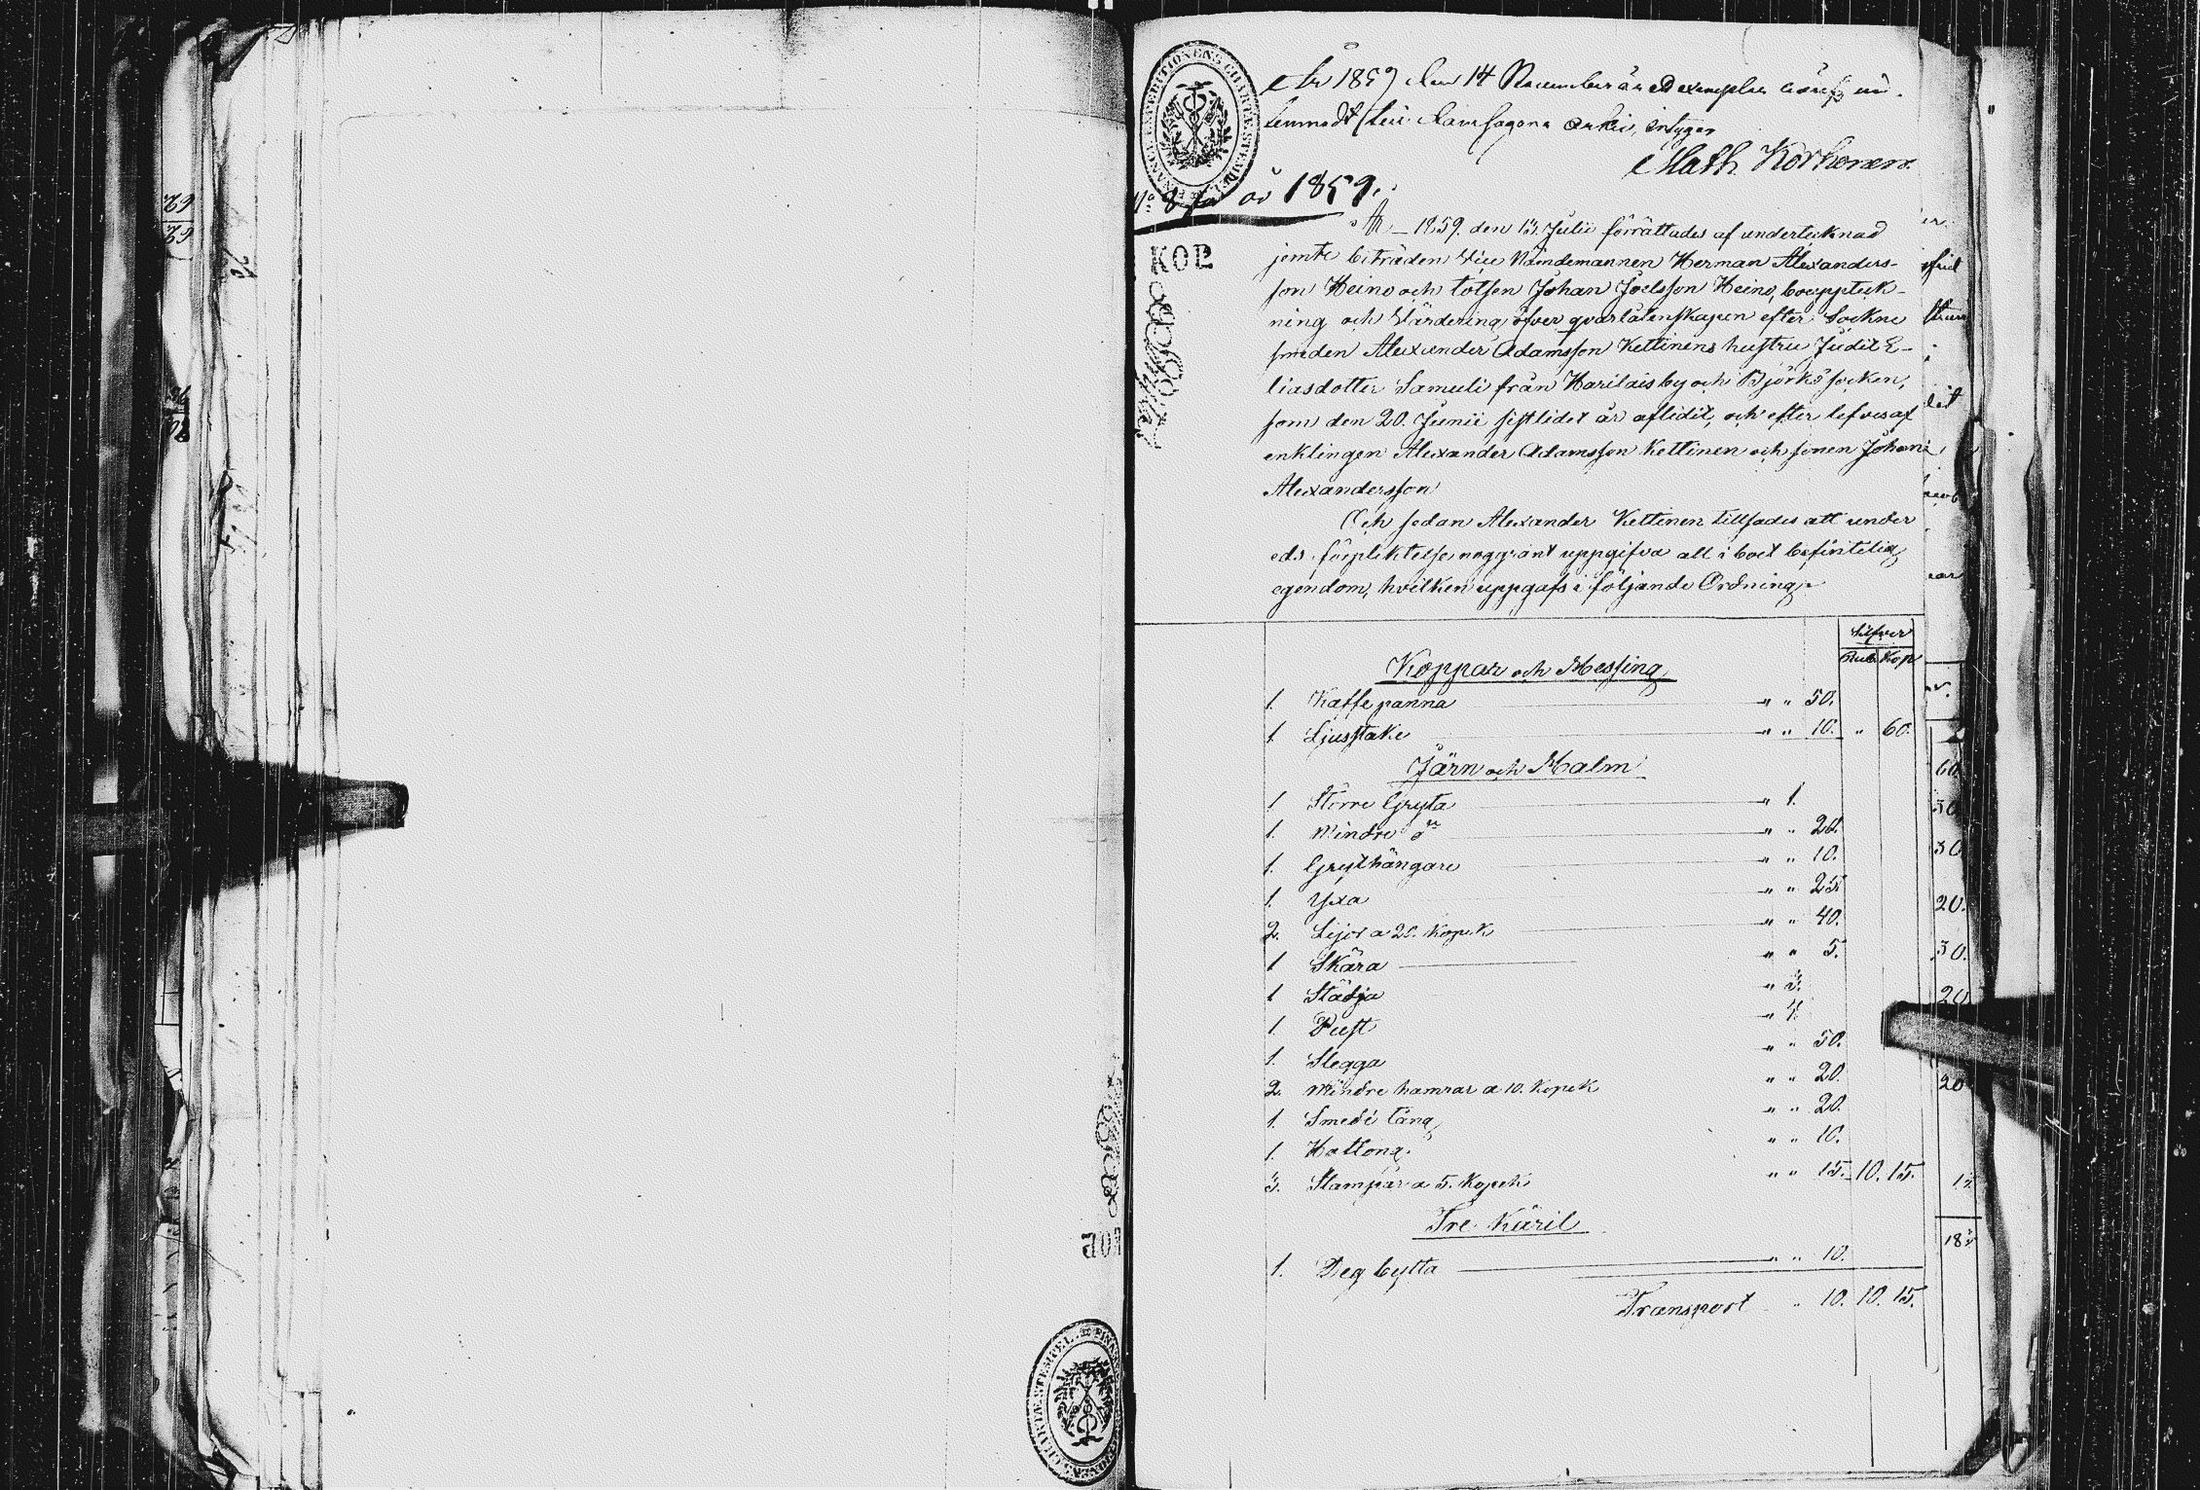 År 1859 den 14 November är ett exemplar häraf in-
lemnadt till Domsagans arkiv, intygar
Math Korhonen
No 8 för år 1859.
KOP.
År 1859. den 15. Julii förrättades af undertecknad
jemte biträden Vice Nämdemannen Herman Alexanders-
son Heino och lotsen Johan Joelsson Heino, bouppteck-
ning och Värdering öfver qvarlåtenskapen efter Sockne
smeden Alexander Adamsson Kettinens hustru Judit E-
liasdotter Samuli från Harilais by och Björkö socken,
som den 20. Junii sistlidet år aflidit, och efter lefves af
enklingen Alexander Adamsson Kettinen och sonen Johan
Alexandersson
Och sedan Alexander Kettinen tillsades att under
eds förpliktelse noggrant uppgifva all i boet befintelig
egendom, hvilken uppgafs i följande Ordning
Silfver
Rub. Kop
Koppar och Messing
1. Kaffe panna " " 50.
1. Ljusstake " " 10. " 60.
Järn och Malm
1 Större Gryta " 1.
1. Mindre do " " 20.
1. Grythängare " " 10.
1. Yxa " " 25.
2. Lijor a 20. Kopek " " 40.
1 Skära " " 5.
1 Städja " 3.
1 Pust " 4.
1. Slegga " " 50.
2. Mindre hamrar a 10. Kopek " " 20.
1. Smedi tång " " 20.
1. Hattong " " 10.
3. Stampar a 5. Kopek " " 15. 10. 15.
Tre Käril
1. Deg bytta " " 10.
Transport " 10. 10. 15.